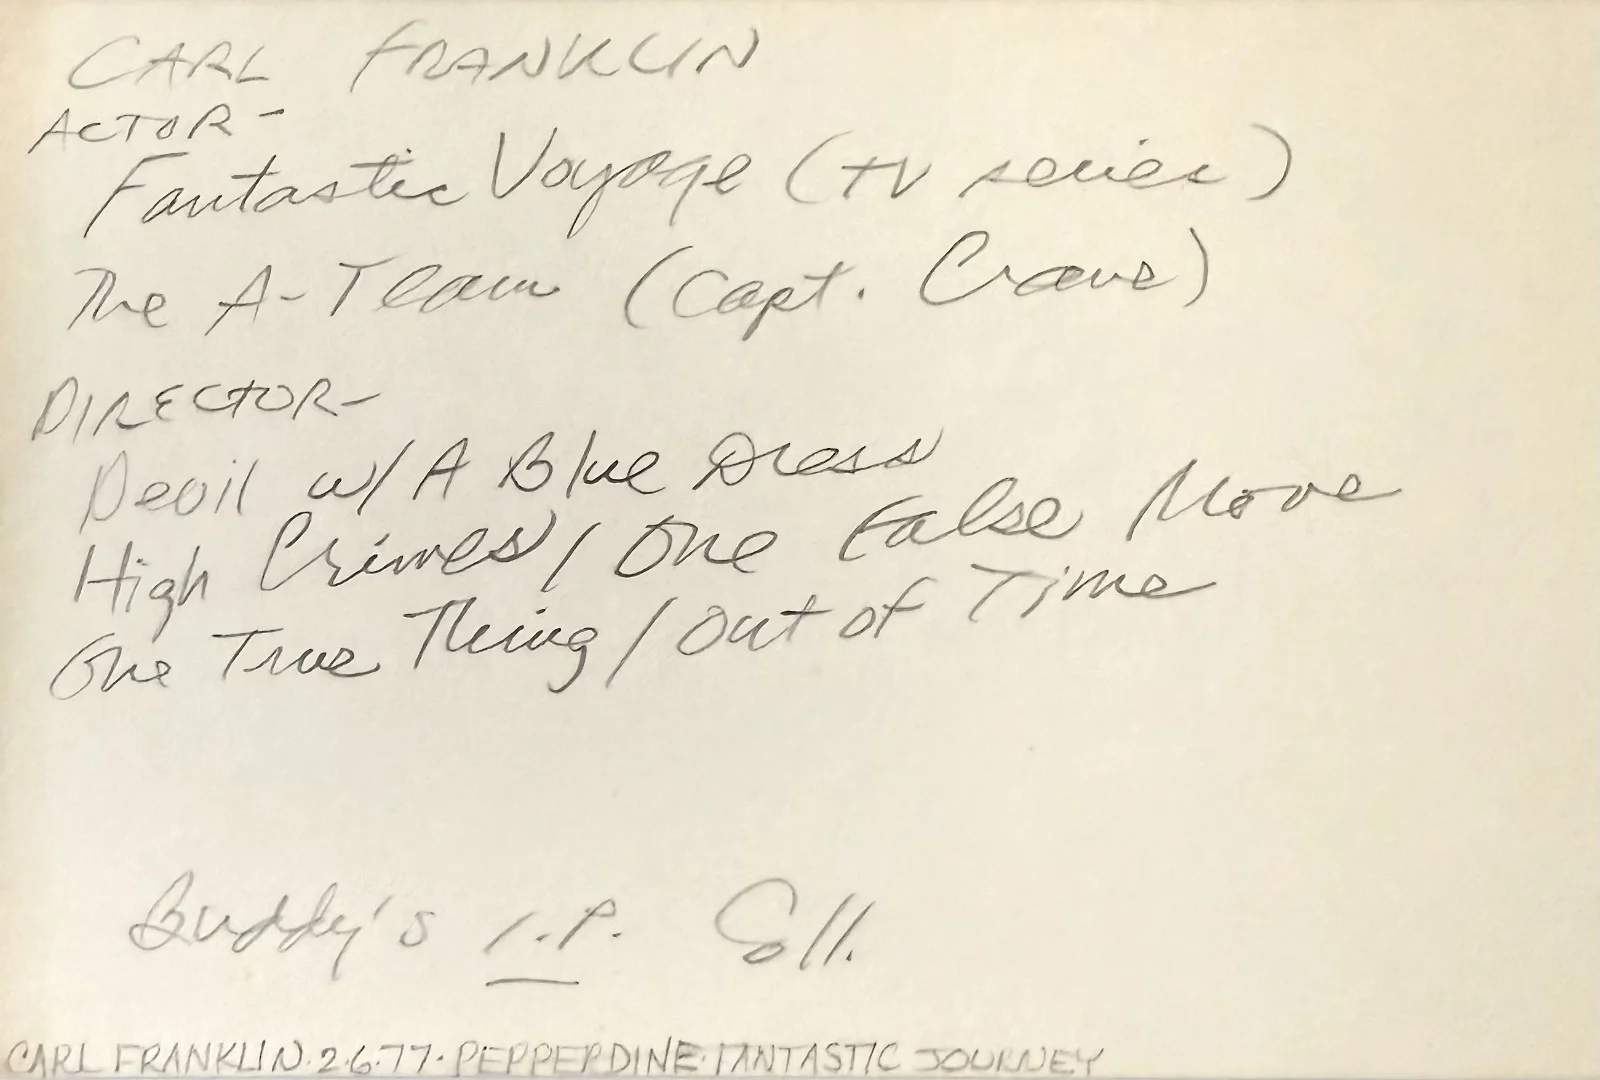 CARL FRANKLIN
ACTOR-
Fantastic Voyage (TV series)
The A-Team (Capt. Crane)
DIRECTOR-
Devil w/ A Blue Dress
High Crimes / One False Move
One True Thing / Out of Time
Buddy's I.P. Coll.
CARL FRANKLIN·2·6·77·PEPPERDINE·FANTASTIC JOURNEY